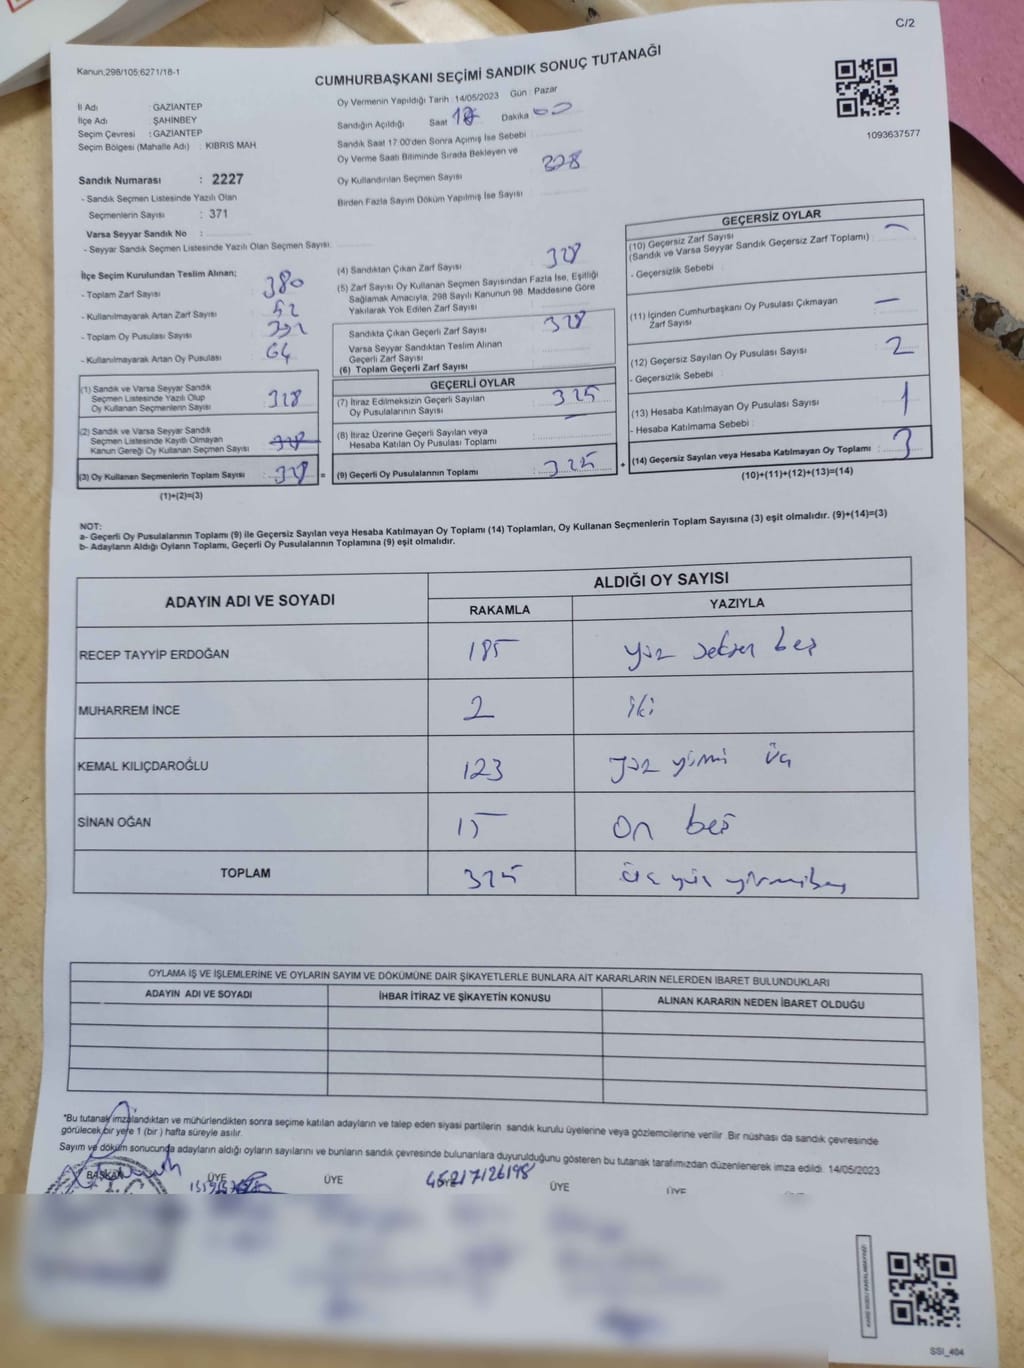 C/2
Kanun:298/105;6271/18-1
CUMHURBAŞKANI SEÇİMİ SANDIK SONUÇ TUTANAĞI
1093637577
İl Adı : GAZİANTEP
İlçe Adı : ŞAHİNBEY
Seçim Çevresi : GAZİANTEP
Seçim Bölgesi (Mahalle Adı) : KIBRIS MAH
Sandık Numarası : 2227
- Sandık Seçmen Listesinde Yazılı Olan
Seçmenlerin Sayısı : 371
Varsa Seyyar Sandık No :
- Seyyar Sandık Seçmen Listesinde Yazılı Olan Seçmen Sayısı:
Oy Vermenin Yapıldığı Tarih : 14/05/2023 Gün : Pazar
Sandığın Açıldığı Saat Dakika
Sandık Saat 17:00'den Sonra Açımış İse Sebebi
Oy Verme Saati Bitiminde Sırada Bekleyen ve
Oy Kullandırılan Seçmen Sayısı 328
Birden Fazla Sayım Döküm Yapılmış İse Sayısı
İlçe Seçim Kurulundan Teslim Alınan;
- Toplam Zarf Sayısı 380
- Kullanılmayarak Artan Zarf Sayısı 52
- Toplam Oy Pusulası Sayısı 392
- Kullanılmayarak Artan Oy Pusulası 64
(1) Sandık ve Varsa Seyyar Sandık
Seçmen Listesinde Yazılı Olup
Oy Kullanan Seçmenlerin Sayısı 328
(2) Sandık ve Varsa Seyyar Sandık
Seçmen Listesinde Kayıtlı Olmayan
Kanun Gereği Oy Kullanan Seçmen Sayısı
(3) Oy Kullanan Seçmenlerin Toplam Sayısı : 328 =
(1)+(2)=(3)
(4) Sandıktan Çıkan Zarf Sayısı 328
(5) Zarf Sayısı Oy Kullanan Seçmen Sayısından Fazla İse, Eşitliği
Sağlamak Amacıyla, 298 Sayılı Kanunun 98. Maddesine Göre
Yakılarak Yok Edilen Zarf Sayısı
Sandıkta Çıkan Geçerli Zarf Sayısı 328
Varsa Seyyar Sandıktan Teslim Alınan
Geçerli Zarf Sayısı
(6) Toplam Geçerli Zarf Sayısı
GEÇERLİ OYLAR
(7) İtiraz Edilmeksizin Geçerli Sayılan
Oy Pusulalarının Sayısı : 325
(8) İtiraz Üzerine Geçerli Sayılan veya
Hesaba Katılan Oy Pusulası Toplamı :
(9) Geçerli Oy Pusulalarının Toplamı : 325 +
GEÇERSİZ OYLAR
(10) Geçersiz Zarf Sayısı
(Sandık ve Varsa Seyyar Sandık Geçersiz Zarf Toplamı) : –
- Geçersizlik Sebebi :
(11) İçinden Cumhurbaşkanı Oy Pusulası Çıkmayan
Zarf Sayısı –
(12) Geçersiz Sayılan Oy Pusulası Sayısı 2
- Geçersizlik Sebebi
(13) Hesaba Katılmayan Oy Pusulası Sayısı 1
- Hesaba Katılmama Sebebi
(14) Geçersiz Sayılan veya Hesaba Katılmayan Oy Toplamı : 3
(10)+(11)+(12)+(13)=(14)
NOT:
a- Geçerli Oy Pusulalarının Toplamı (9) ile Geçersiz Sayılan veya Hesaba Katılmayan Oy Toplamı (14) Toplamları, Oy Kullanan Seçmenlerin Toplam Sayısına (3) eşit olmalıdır. (9)+(14)=(3)
b- Adayların Aldığı Oyların Toplamı, Geçerli Oy Pusulalarının Toplamına (9) eşit olmalıdır.
ADAYIN ADI VE SOYADI ALDIĞI OY SAYISI
RAKAMLA YAZIYLA
RECEP TAYYİP ERDOĞAN 185 yüz seksen beş
MUHARREM İNCE 2 iki
KEMAL KILIÇDAROĞLU 123 yüz yirmi üç
SİNAN OĞAN 15 on beş
TOPLAM 325 üç yüz yirmibeş
OYLAMA İŞ VE İŞLEMLERİNE VE OYLARIN SAYIM VE DÖKÜMÜNE DAİR ŞİKAYETLERLE BUNLARA AİT KARARLARIN NELERDEN İBARET BULUNDUKLARI
ADAYIN ADI VE SOYADI İHBAR İTİRAZ VE ŞİKAYETİN KONUSU ALINAN KARARIN NEDEN İBARET OLDUĞU
*Bu tutanak imzalandıktan ve mühürlendikten sonra seçime katılan adayların ve talep eden siyasi partilerin sandık kurulu üyelerine veya gözlemcilerine verilir. Bir nüshası da sandık çevresinde
görülecek bir yere 1 (bir) hafta süreyle asılır.
Sayım ve döküm sonucunda adayların aldığı oyların sayılarını ve bunların sandık çevresinde bulunanlara duyurulduğunu gösteren bu tutanak tarafımızdan düzenlenerek imza edildi. 14/05/2023
BAŞKAN ÜYE ÜYE 45217126198 ÜYE ÜYE
SSI_404